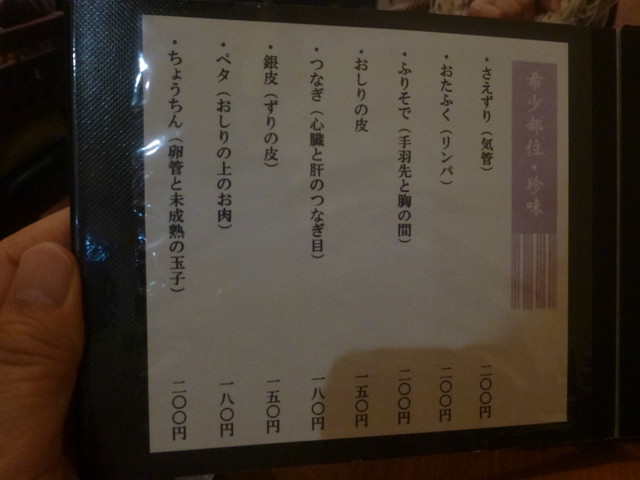 希少部位・珍味
・さえずり（気管） 二〇〇円
・おたふく（リンパ） 二〇〇円
・ふりそで（手羽先と胸の間） 二〇〇円
・おしりの皮 一五〇円
・つなぎ（心臓と肝のつなぎ目） 一八〇円
・銀皮（ずりの皮） 一五〇円
・ペタ（おしりの上のお肉） 一八〇円
・ちょうちん（卵管と未成熟の玉子） 二〇〇円